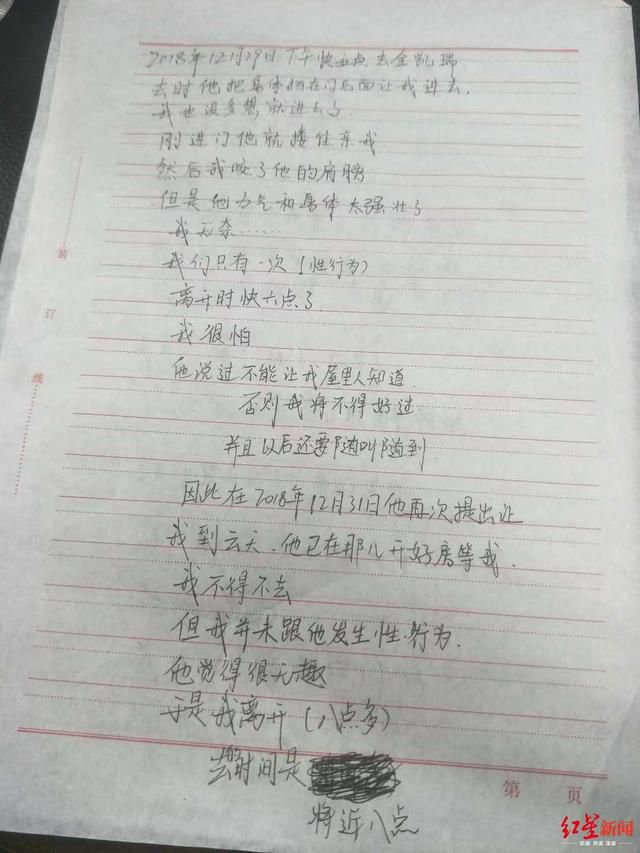 2018年12月29日下午快五点去金凯瑞
去时他把身体掩在门后面让我进去.
我也没多想就进去了
刚进门他就搂住亲我
然后我咬了他的肩膀
但是他力气和身体太强壮了
我无奈……
我们只有一次(性行为)
离开时快六点了
我很怕
他说过不能让我屋里人知道.
否则我将不得好过.
并且以后还要随叫随到.
因此在2018年12月31日他再次提出让
我到云天.他已在那儿开好房等我.
我不得不去
但我并未跟他发生性行为.
他觉得很无趣
于是我离开(八点多)
去时间是
将近八点
装
订
线
第 页
红星新闻